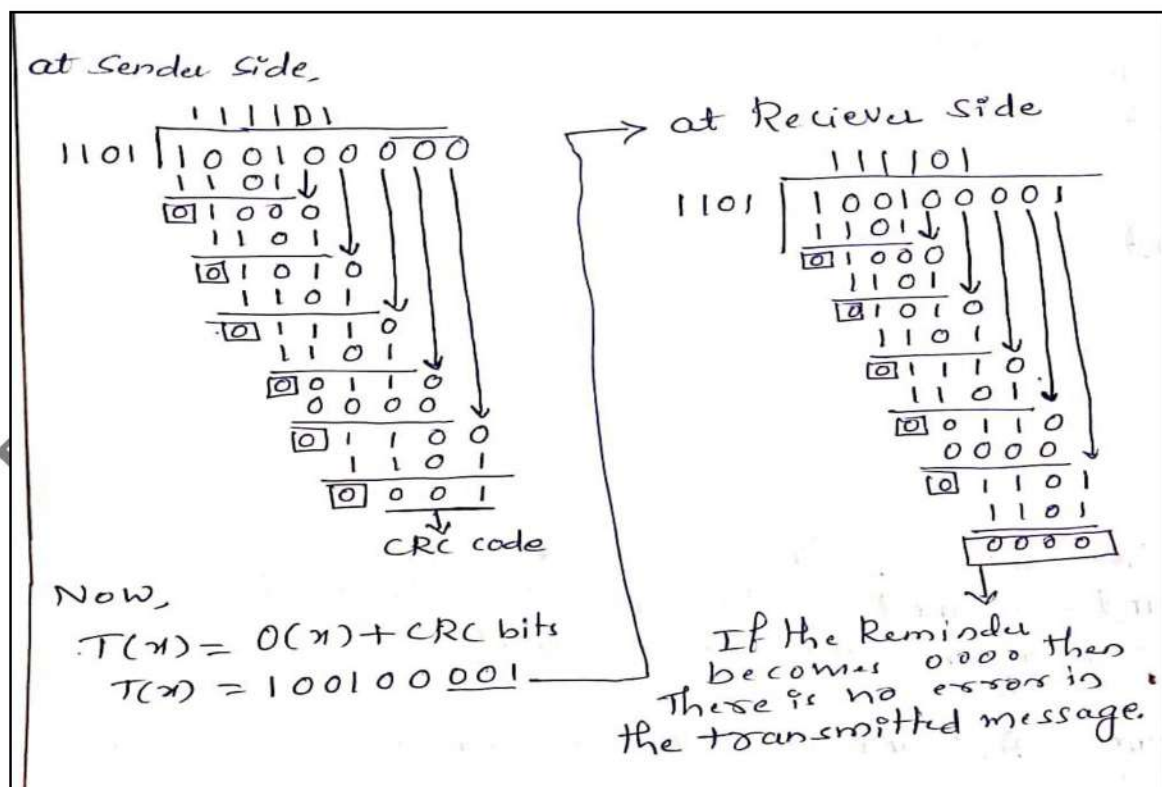 at Sender Side,
1 1 1 1 0 1
1101 1 0 0 1 0 0 0 0 0
1 1 0 1
0 1 0 0 0
1 1 0 1
0 1 0 1 0
1 1 0 1
0 1 1 1 0
1 1 0 1
0 0 1 1 0
0 0 0 0
0 1 1 0 0
1 1 0 1
0 0 0 1
CRC code
Now,
T(x) = O(x) + CRC bits
T(x) = 100100001
at Reciever Side
1 1 1 1 0 1
1101 1 0 0 1 0 0 0 0 1
1 1 0 1
0 1 0 0 0
1 1 0 1
0 1 0 1 0
1 1 0 1
0 1 1 1 0
1 1 0 1
0 0 1 1 0
0 0 0 0
0 1 1 0 1
1 1 0 1
0 0 0 0
If the Reminder
becomes 0000 then
There is no error in
the transmitted message.